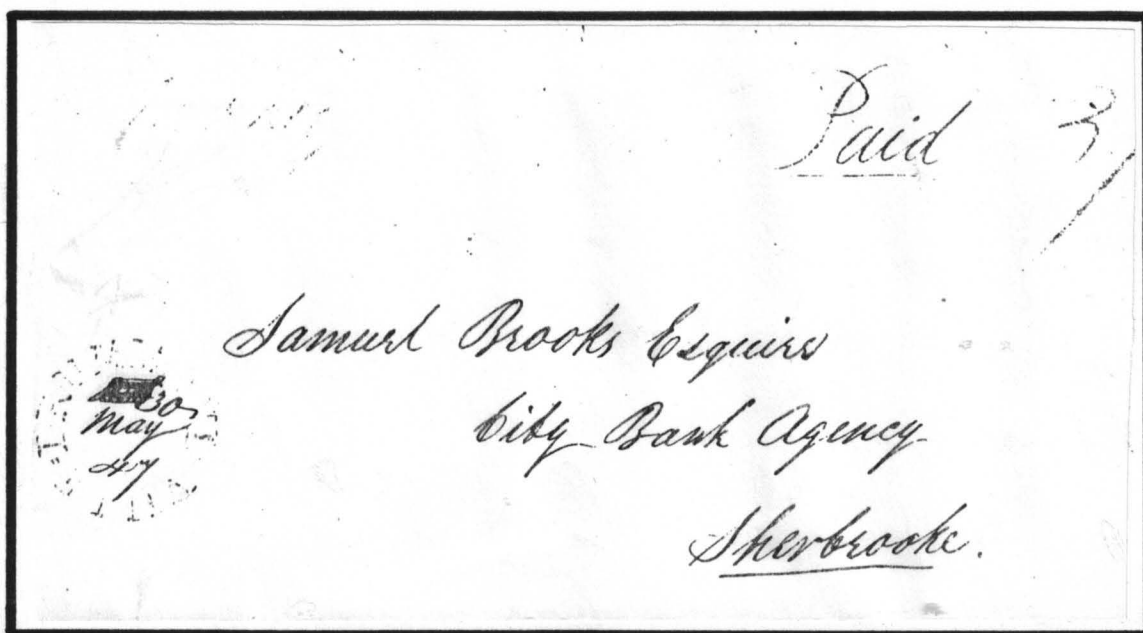 Paid
Samuel Brooks Esquire
City Bank Agency
Sherbrooke.
30
May
47